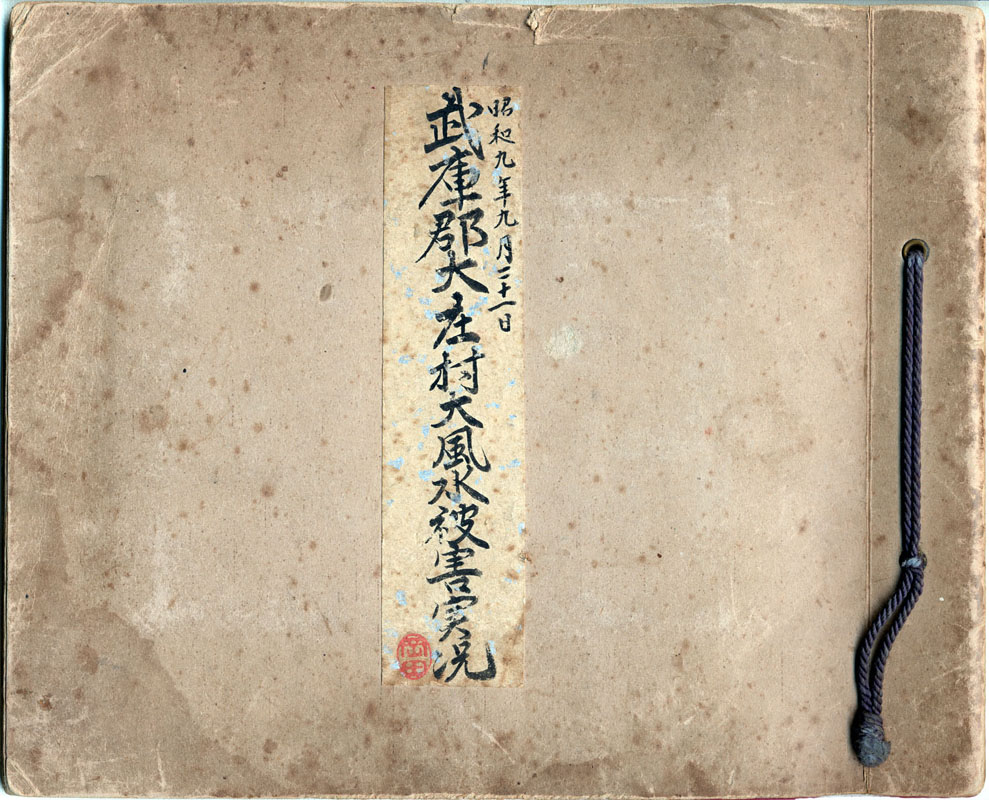 昭和九年九月二十一日
武庫郡大庄村大風水被害実況
岡田